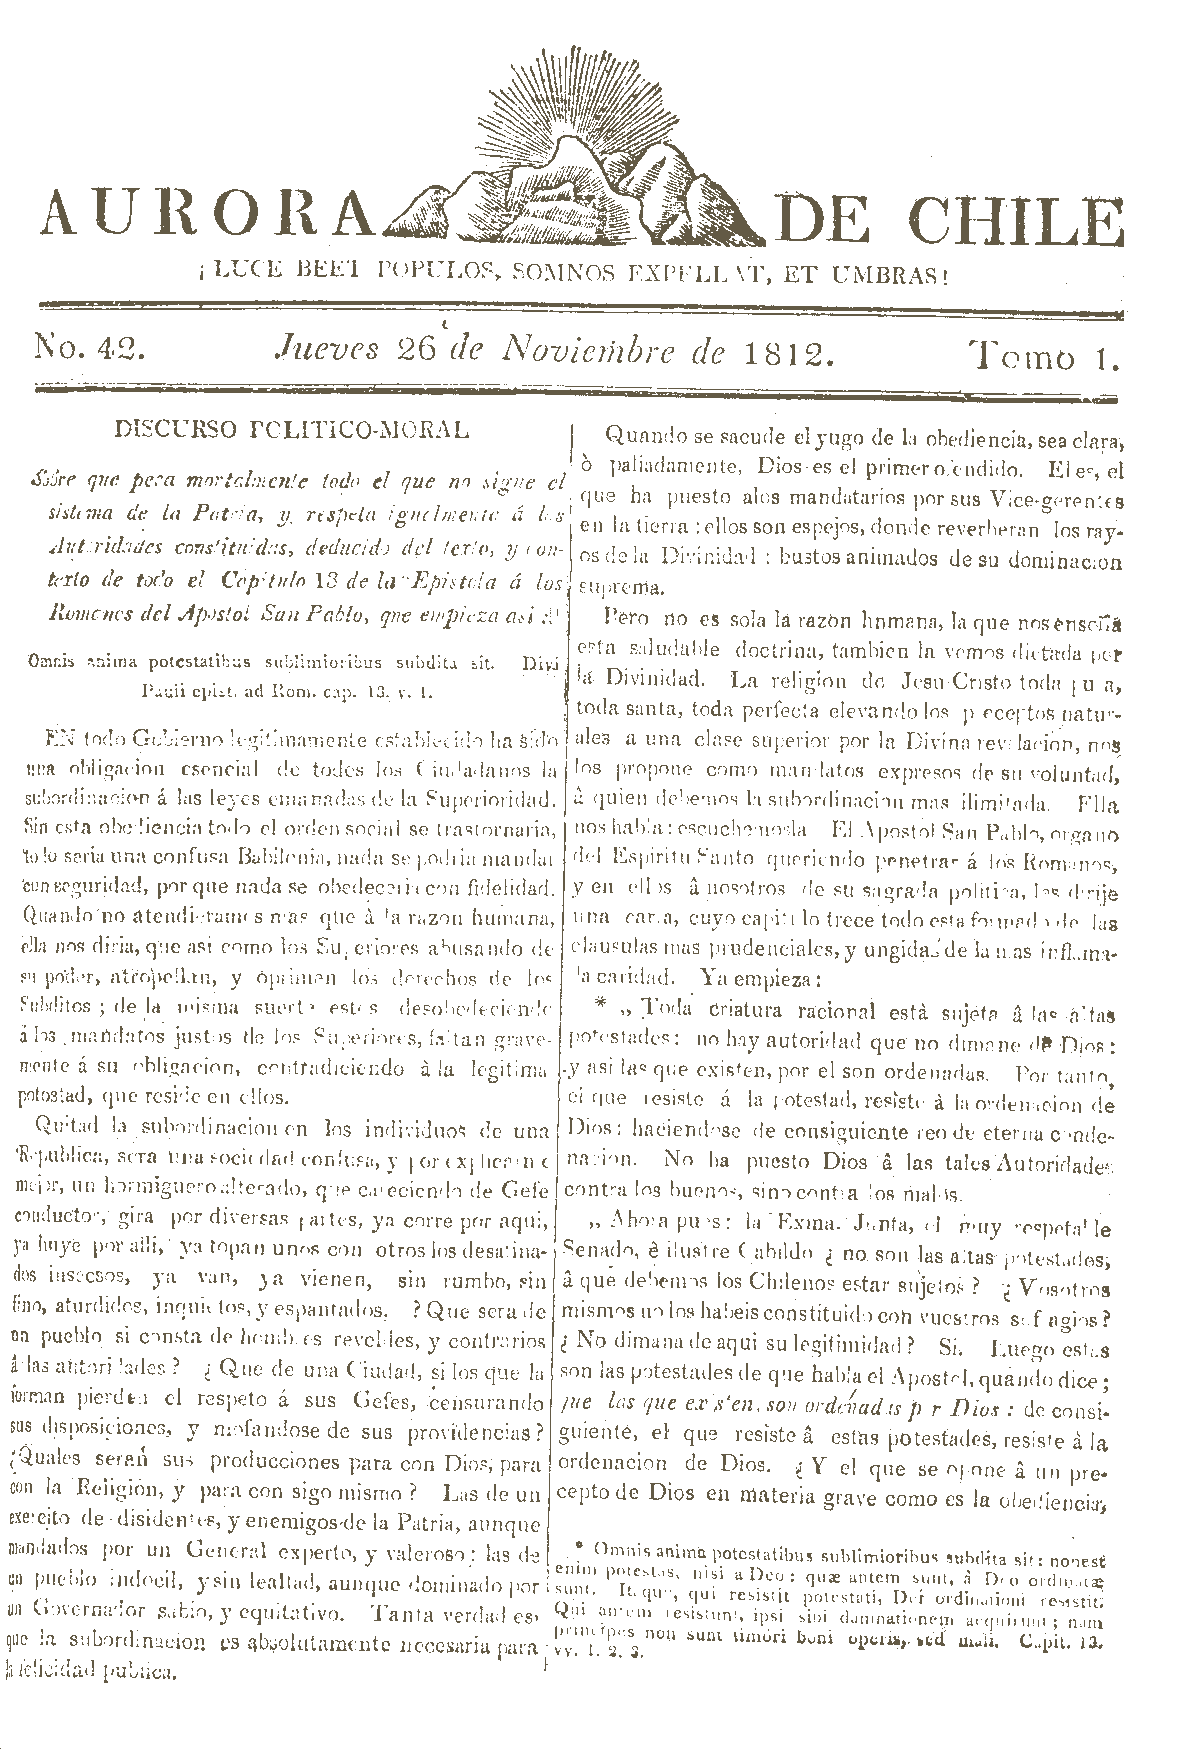 AURORA DE CHILE
¡LUCE BEET POPULOS, SOMNOS EXPELLAT, ET UMBRAS!
No. 42. Jueves 26 de Noviembre de 1812. Tomo 1.
DISCURSO POLITICO-MORAL
Sobre que peca mortalmente todo el que no sigue el
sistema de la Patria, y respeta igualmente á las
Autoridades constituidas, deducido del texto, y con-
texto de todo el Capitulo 13 de la Epistola á los
Romanos del Apostol San Pablo, que empieza asi
Omnis anima potestatibus sublimioribus subdita sit. Divi
Pauli epist. ad Rom. cap. 13. v. 1.
EN todo Gobierno legitimamente establecido ha sido
una obligacion esencial de todos los Ciudadanos la
subordinacion á las leyes emanadas de la Superioridad.
Sin esta obediencia todo el orden social se trastornaria,
todo seria una confusa Babilonia, nada se podria mandar
con seguridad, por que nada se obedeceria con fidelidad.
Quando no atendieramos mas que à la razon humana,
ella nos diria, que asi como los Superiores abusando de
su poder, atropellan, y oprimen los derechos de los
Subditos; de la misma suerte estos desobedeciendo
á los mandatos justos de los Superiores, faltan grave-
mente á su obligacion, contradiciendo à la legitima
potostad, que reside en ellos.
Quitad la subordinacion en los individuos de una
Republica, sera una sociedad confusa, y por explicarme
mejor, un hormiguero alterado, que careciendo de Gefe
conductor, gira por diversas partes, ya corre por aqui,
ya huye por alli, ya topan unos con otros los desatina-
dos insecsos, ya van, ya vienen, sin rumbo, sin
tino, aturdidos, inquietos, y espantados. ?Que sera de
un pueblo si consta de hombres reveldes, y contrarios
â las autoridades? ¿Que de una Ciudad, si los que la
forman pierden el respeto á sus Gefes, censurando
sus disposiciones, y mofandose de sus providencias?
¿Quales serań sus producciones para con Dios, para
con la Religión, y para con sigo mismo? Las de un
exercito de disidentes, y enemigos de la Patria, aunque
mandados por un General experto, y valeroso: las de
un pueblo indocil, y sin lealtad, aunque dominado por
un Governador sabio, y equitativo. Tanta verdad es,
que la subordinacion es absolutamente necesaria para
la felicidad publica.
Quando se sacude el yugo de la obediencia, sea clara,
ò paliadamente, Dios es el primero ofendido. El es, el
que ha puesto alos mandatarios por sus Vice-gerentes
en la tierra: ellos son espejos, donde reverberan los ray-
os de la Divinidad: bustos animados de su dominacion
suprema.
Pero no es sola la razon humana, la que nos enseña
esta saludable doctrina, tambien la vemos dictada por
la Divinidad. La religion de Jesu-Cristo toda pura,
toda santa, toda perfecta elevando los preceptos natur-
ales a una clase superior por la Divina revelacion, nos
los propone como mandatos expresos de su voluntad,
â quien debemos la subordinacion mas ilimitada. Ella
nos habla: escuchemosla El Apostol San Pablo, organo
del Espiritu Santo queriendo penetrar á los Romanos,
y en ellos â nosotros de su sagrada politica, les dirije
una carta, cuyo capitulo trece todo esta formado de las
clausulas mas prudenciales, y ungidas de la mas inflama-
da caridad. Ya empieza:
* „ Toda criatura racional està sujeta â las altas
potestades: no hay autoridad que no dimane de Dios:
y asi las que existen, por el son ordenadas. Por tanto,
el que resiste á la potestad, resiste à la ordenacion de
Dios: haciendose de consiguiente reo de eterna conde-
nacion. No ha puesto Dios â las tales Autoridades
contra los buenos, sino contra los malos.
„ Ahora pues: la Exma. Junta, el muy respetable
Senado, è ilustre Cabildo ¿no son las altas potestades,
â que debemos los Chilenos estar sujetos? ¿Vosotros
mismos no los habeis constituido con vuestros sufragios?
¿No dimana de aqui su legitimidad? Si. Luego estas
son las potestades de que habla el Apostol, quando dice;
que las que existen, son ordenadas por Dios: de consi-
guiente, el que resiste â estas potestades, resiste à la
ordenacion de Dios. ¿Y el que se opone â un pre-
cepto de Dios en materia grave como es la obediencia,
* Omnis anima potestatibus sublimioribus subdita sit: non est
enim potestas, nisi a Deo: quæ autem sunt, â Deo ordinatæ
sunt. Itaque, qui resistit potestati, Dei ordinationi resistit.
Qui autem resistunt, ipsi sibi damnationem acquirunt; nam
principes non sunt timori boni operis, sed mali. Capit. 13.
vv. 1. 2. 3.